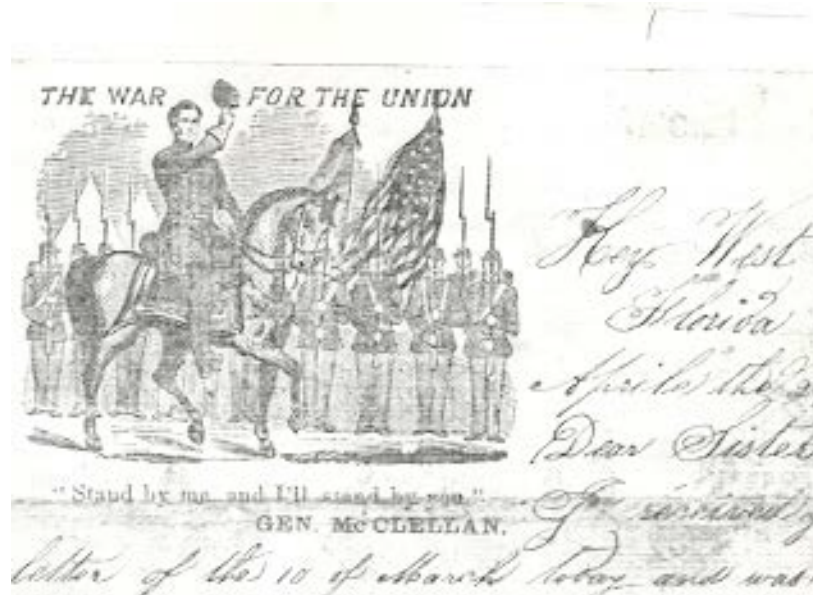 THE WAR FOR THE UNION
"Stand by me, and I'll stand by you."
GEN. McCLELLAN.
Key West
Florida
Aprile the
Dear Sister
I received
letter of the 10 of March today and was